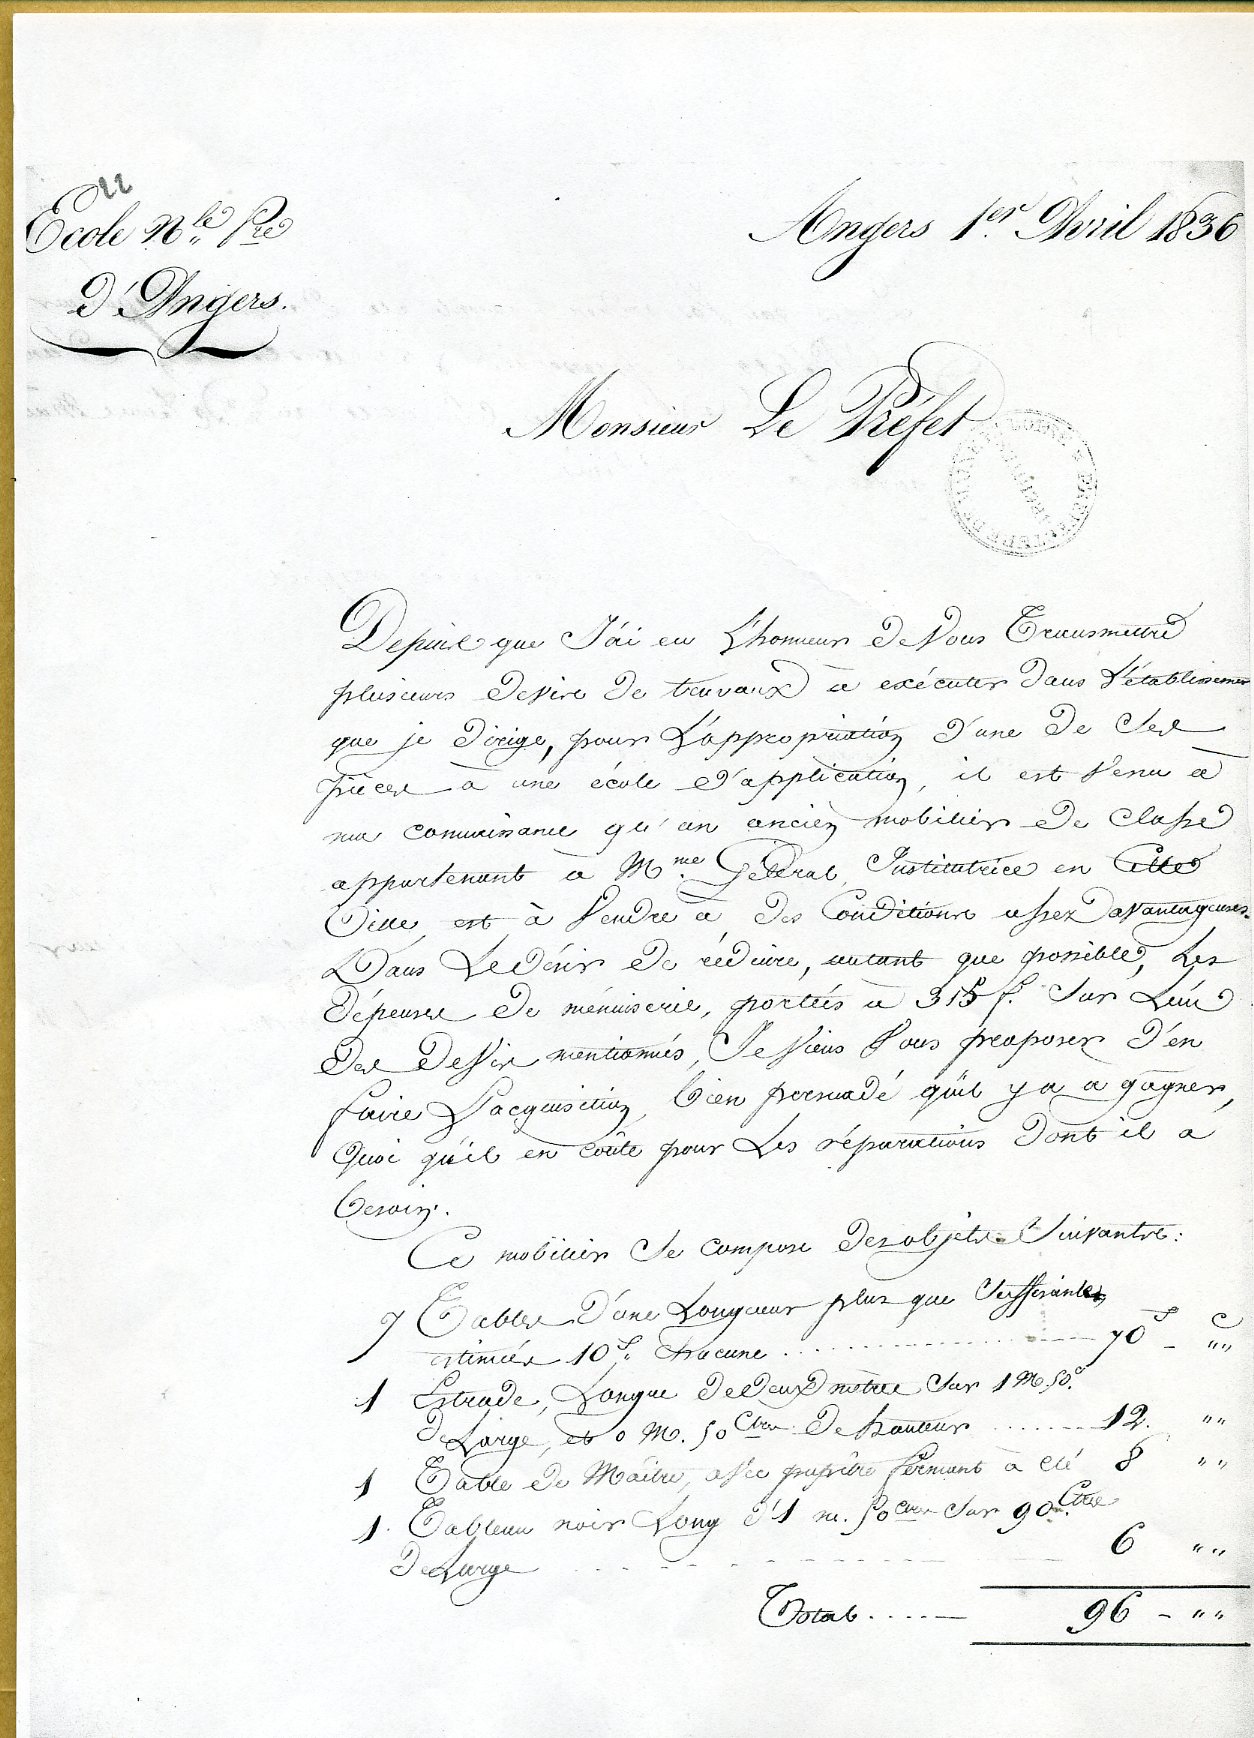 22
Ecole N.le P.re
d'Angers.
Angers 1.er Avril 1836
Monsieur Le Préfet
PREFECTURE DE MAINE ET LOIRE
Depuis que J'ai eu L'honneur de Vous Transmettre
plusieurs devis de travaux à exécuter dans l'établissement
que je dirige, pour L'appropriation d'une de Ses
pièces à une école d'application, il est Venu à
ma connaissance qu'un ancien mobilier de Classe
appartenant à M.me Institutrice en Cette
Ville, est à Vendre à des Conditions assez avantageuses.
Dans Le désir de réduire, autant que possible, Les
dépenses de menuiserie, portées à 315 f. Sur L'un
des deVis mentionnés, Je Viens Vous proposer d'en
faire L'acquisition, bien persuadé qu'il y a à gagner,
quoi qu'il en coûte pour Les réparations dont il a
besoin.
Ce mobilier Se compose des objets Suivants :
7 Tables d'une Longueur plus que Suffisante,
estimées 10 f. chacune .......... 70 f - c " "
1 Estrade, Longue de deux mètres Sur 1 M 50 c
de Large, et 0 M. 50 Ctres de hauteur ...... 12. " "
1 Table de Maître, avec pupitre fermant à clé 8 " "
1. Tableau noir Long d'1 m. 50 ctres Sur 90 Ctres
de Large .......... 6 " "
Total..... 96 - " "